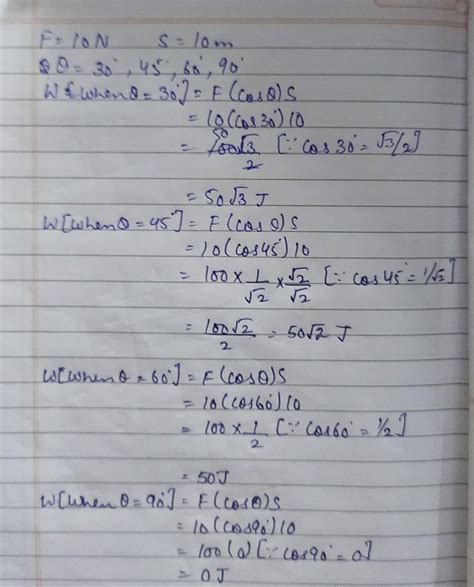 F = 10 N S = 10 m
θ = 30°, 45°, 60°, 90°
W [when θ = 30°] = F (cosθ) S
= 10 (cos 30°) 10
= 50 100√3/2 [∵ cos 30° = √3/2]
= 50√3 J
W [when θ = 45°] = F (cos θ) S
= 10 (cos 45°) 10
= 100 × 1/√2 × √2/√2 [∵ cos 45° = 1/√2]
= 100√2/2 = 50√2 J
W [when θ = 60°] = F (cosθ) S
= 10 (cos 60°) 10
= 100 × 1/2 [∵ cos 60° = 1/2]
= 50 J
W [when θ = 90°] = F (cosθ) S
= 10 (cos 90°) 10
= 100 (0) [∵ cos 90° = 0]
= 0 J